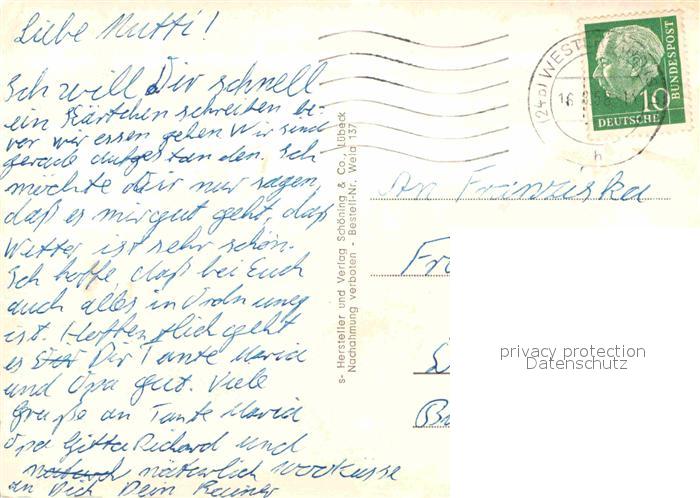 Liebe Mutti!
Ich will Dir schnell
ein Kärtchen schreiben be-
vor wir essen gehen Wir sind
gerade aufgestanden. Ich
möchte dir nur sagen,
daß es mir gut geht, daß
Wetter ist sehr schön.
Ich hoffe, daß bei Euch
auch alles in Ordnung
ist. Hoffentlich geht
es Dir Tante Maria
und Opa gut. Viele
Grüße an Tante Maria
Opa Gitta Richard und
natürlich
an Dich Dein Rainer
s- Hersteller und Verlag Schöning & Co., Lübeck
Nachahmung verboten - Bestell-Nr. Wela 137
(24b) WEST
16
h
10
DEUTSCHE
BUNDESPOST
An Franziska
privacy protection
Datenschutz